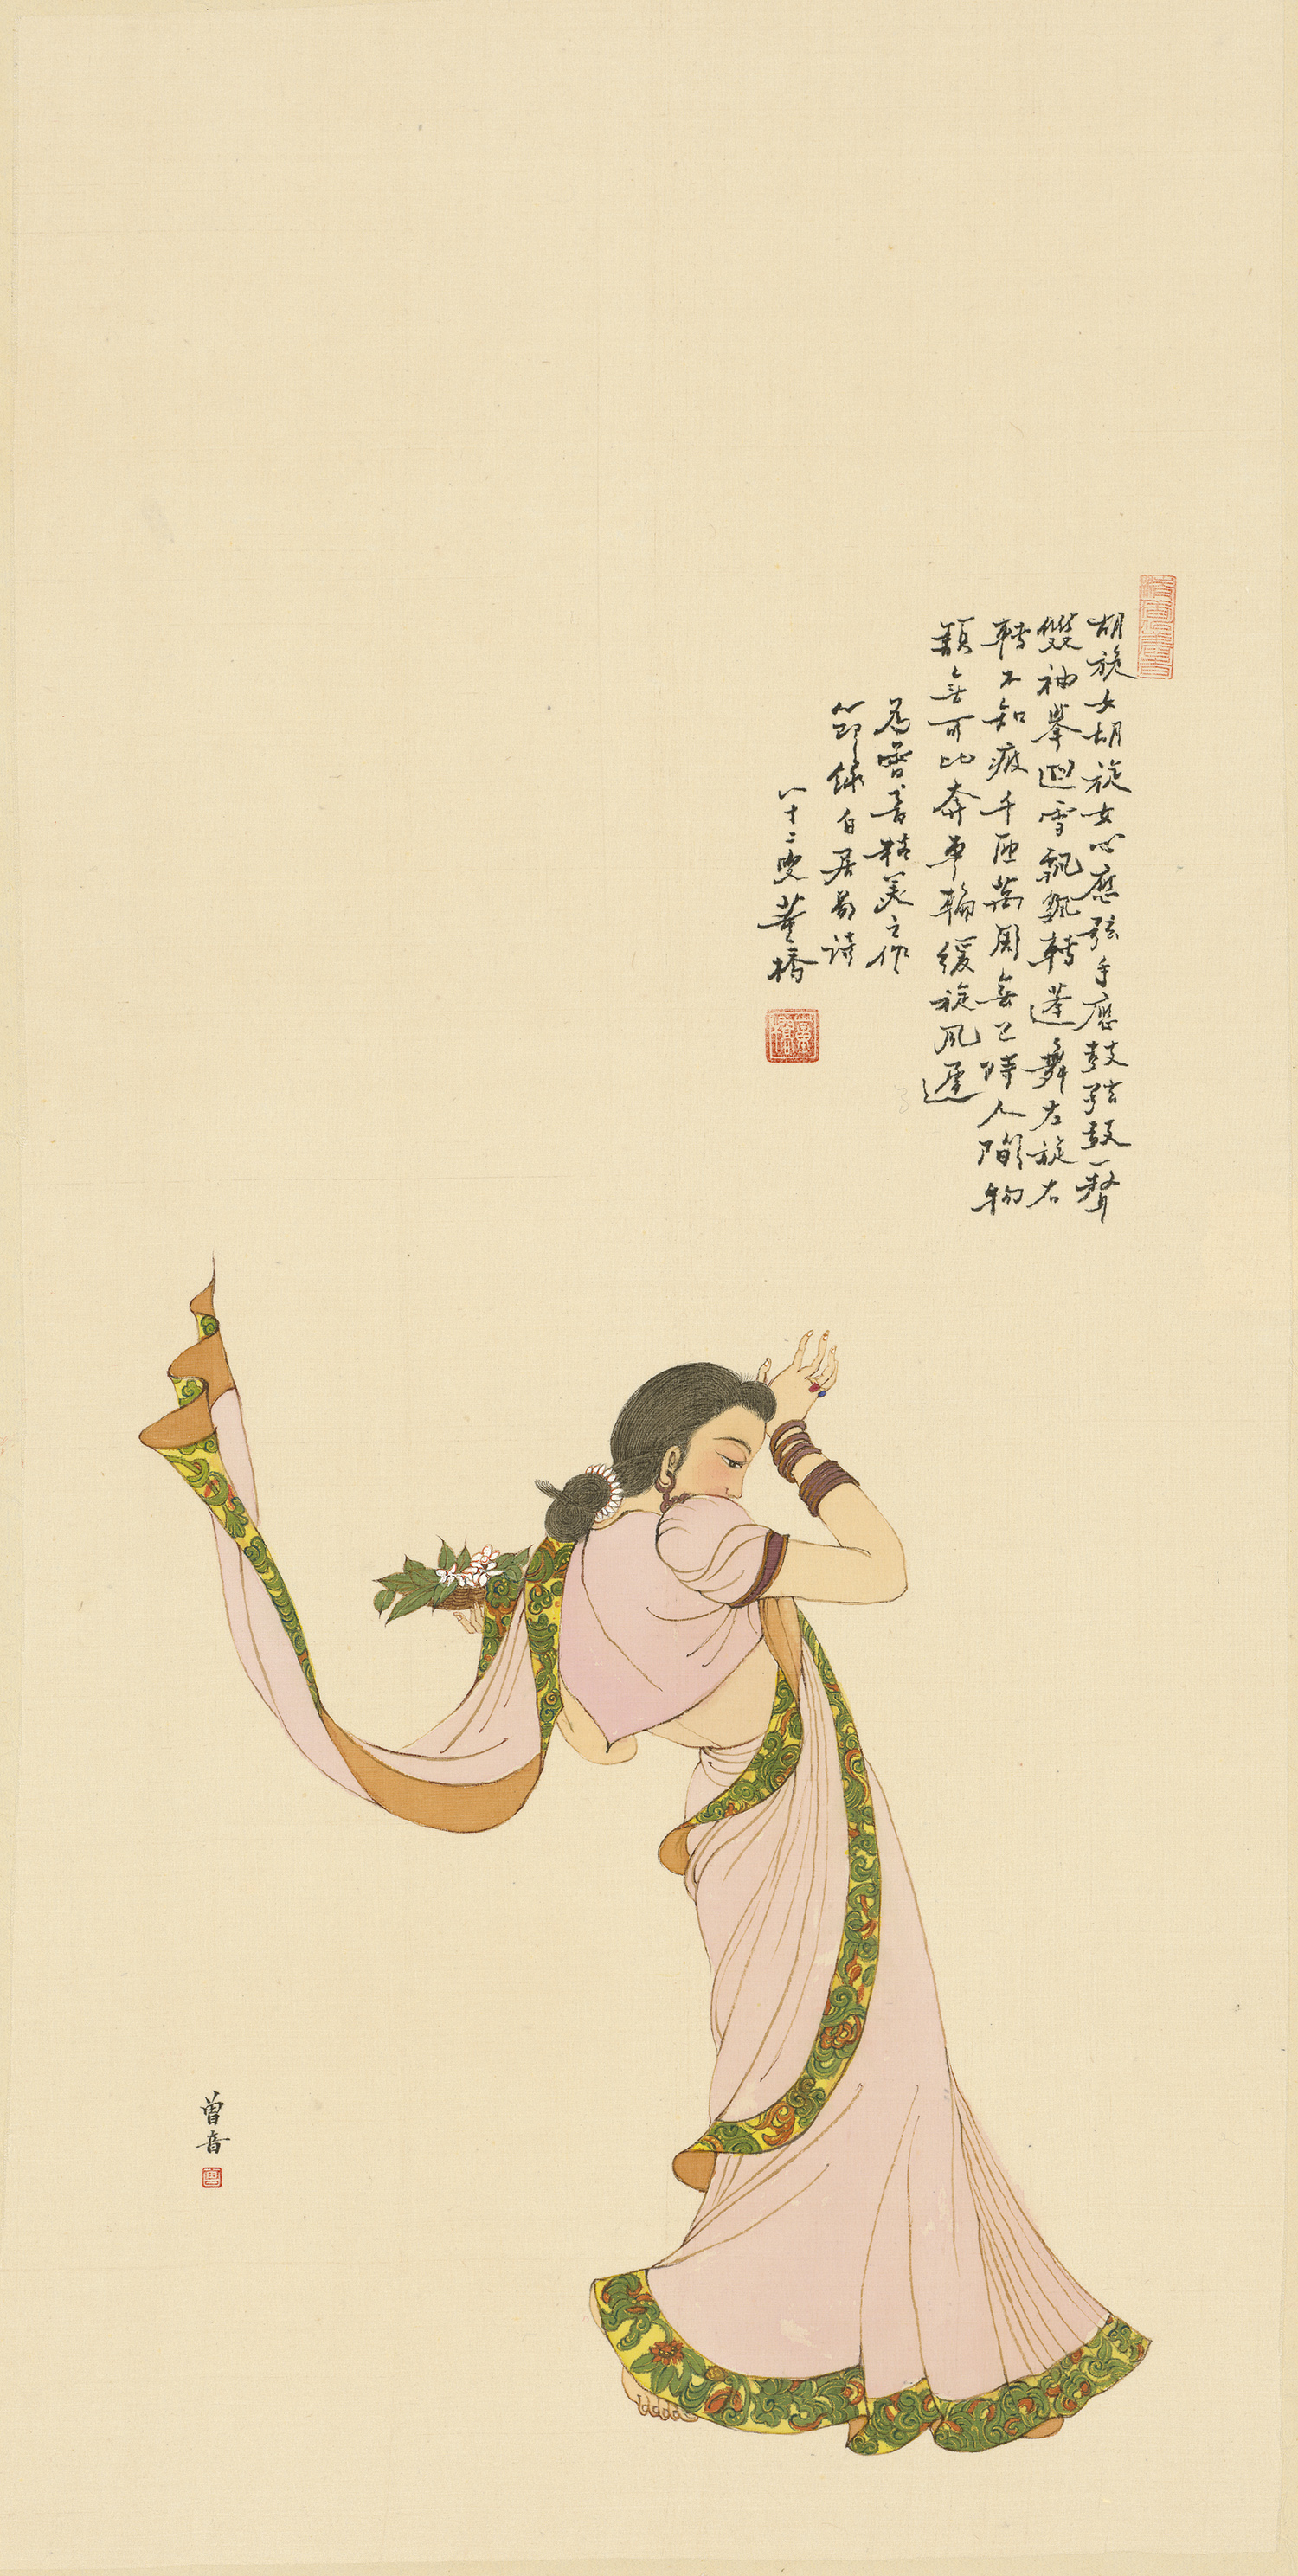 胡旋女胡旋女心應弦手應鼓弦鼓一聲
雙袖舉迴雪飄飄轉蓬舞左旋右
轉不知疲千匝萬周無已時人間物
類無可比奔車輪緩旋風遲
為曾音精美之作
節錄白居易詩
八十二叟董橋
董橋
曾音
曾